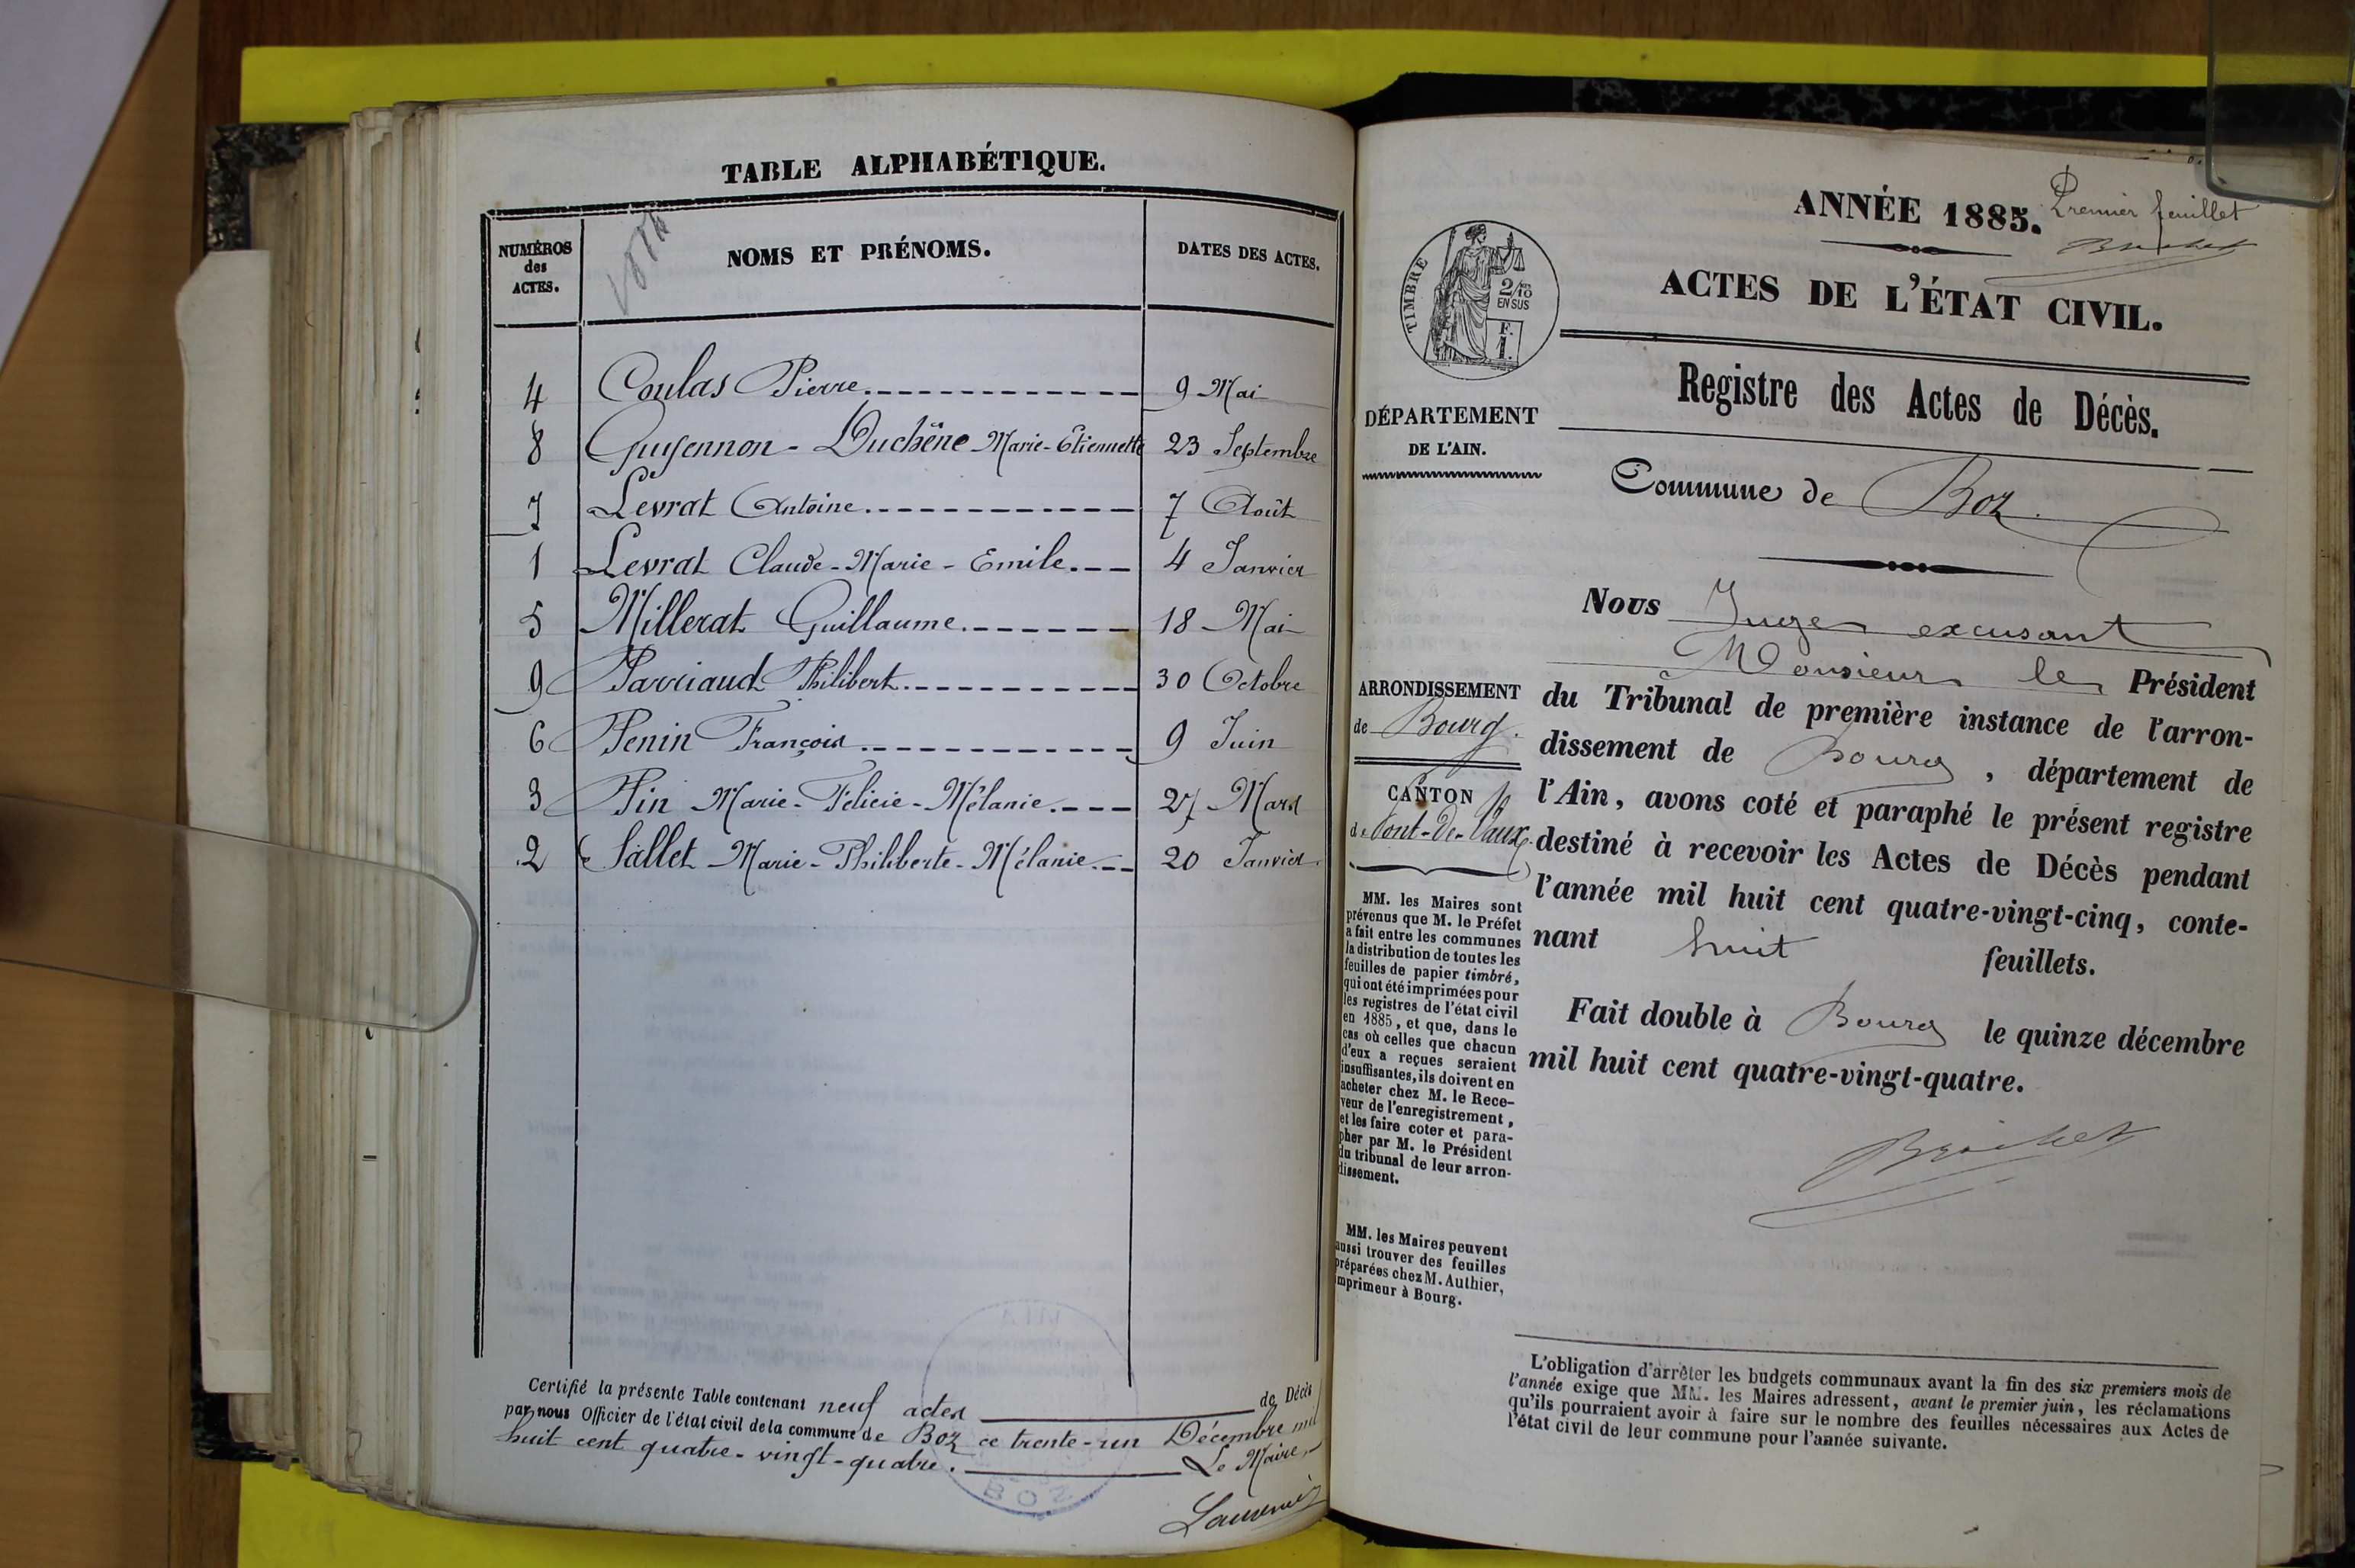 TABLE ALPHABÉTIQUE.
NUMÉROS
des
ACTES.
NOMS ET PRÉNOMS.
DATES DES ACTES.
4 Coulas Pierre 9 Mai
8 Guyennon - Duchêne Marie-Etiennette 23 Septembre
7 Levrat Antoine 7 Août
1 Levrat Claude-Marie-Emile 4 Janvier
5 Millerat Guillaume 18 Mai
9 Parriaud Philibert 30 Octobre
6 Penin François 9 Juin
3 Pin Marie-Felicie-Mélanie 27 Mars
2 Sallet Marie-Philiberte-Mélanie 20 Janvier
Certifié la présente Table contenant neuf actes de Décès
par nous Officier de l'état civil de la commune de Boz ce trente-un Décembre mil
huit cent quatre-vingt-quatre. Le Maire,
BOZ
ANNÉE 1885.
Premier feuillet
TIMBRE
2/10
EN SUS
F.
1.
ACTES DE L'ÉTAT CIVIL.
Registre des Actes de Décès.
DÉPARTEMENT
DE L'AIN.
Commune de Boz.
Nous Juge excusant
Monsieur le Président
du Tribunal de première instance de l'arron-
dissement de Bourg, département de
l'Ain, avons coté et paraphé le présent registre
destiné à recevoir les Actes de Décès pendant
l'année mil huit cent quatre-vingt-cinq, conte-
nant huit feuillets.
Fait double à Bourg le quinze décembre
mil huit cent quatre-vingt-quatre.
ARRONDISSEMENT
de Bourg.
CANTON
de Pont-de-Vaux.
MM. les Maires sont
prévenus que M. le Préfet
a fait entre les communes
la distribution de toutes les
feuilles de papier timbré,
qui ont été imprimées pour
les registres de l'état civil
en 1885, et que, dans le
cas où celles que chacun
d'eux a reçues seraient
insuffisantes, ils doivent en
acheter chez M. le Rece-
veur de l'enregistrement,
et les faire coter et para-
pher par M. le Président
du tribunal de leur arron-
dissement.
MM. les Maires peuvent
aussi trouver des feuilles
préparées chez M. Authier,
imprimeur à Bourg.
L'obligation d'arrêter les budgets communaux avant la fin des six premiers mois de
l'année exige que MM. les Maires adressent, avant le premier juin, les réclamations
qu'ils pourraient avoir à faire sur le nombre des feuilles nécessaires aux Actes de
l'état civil de leur commune pour l'année suivante.